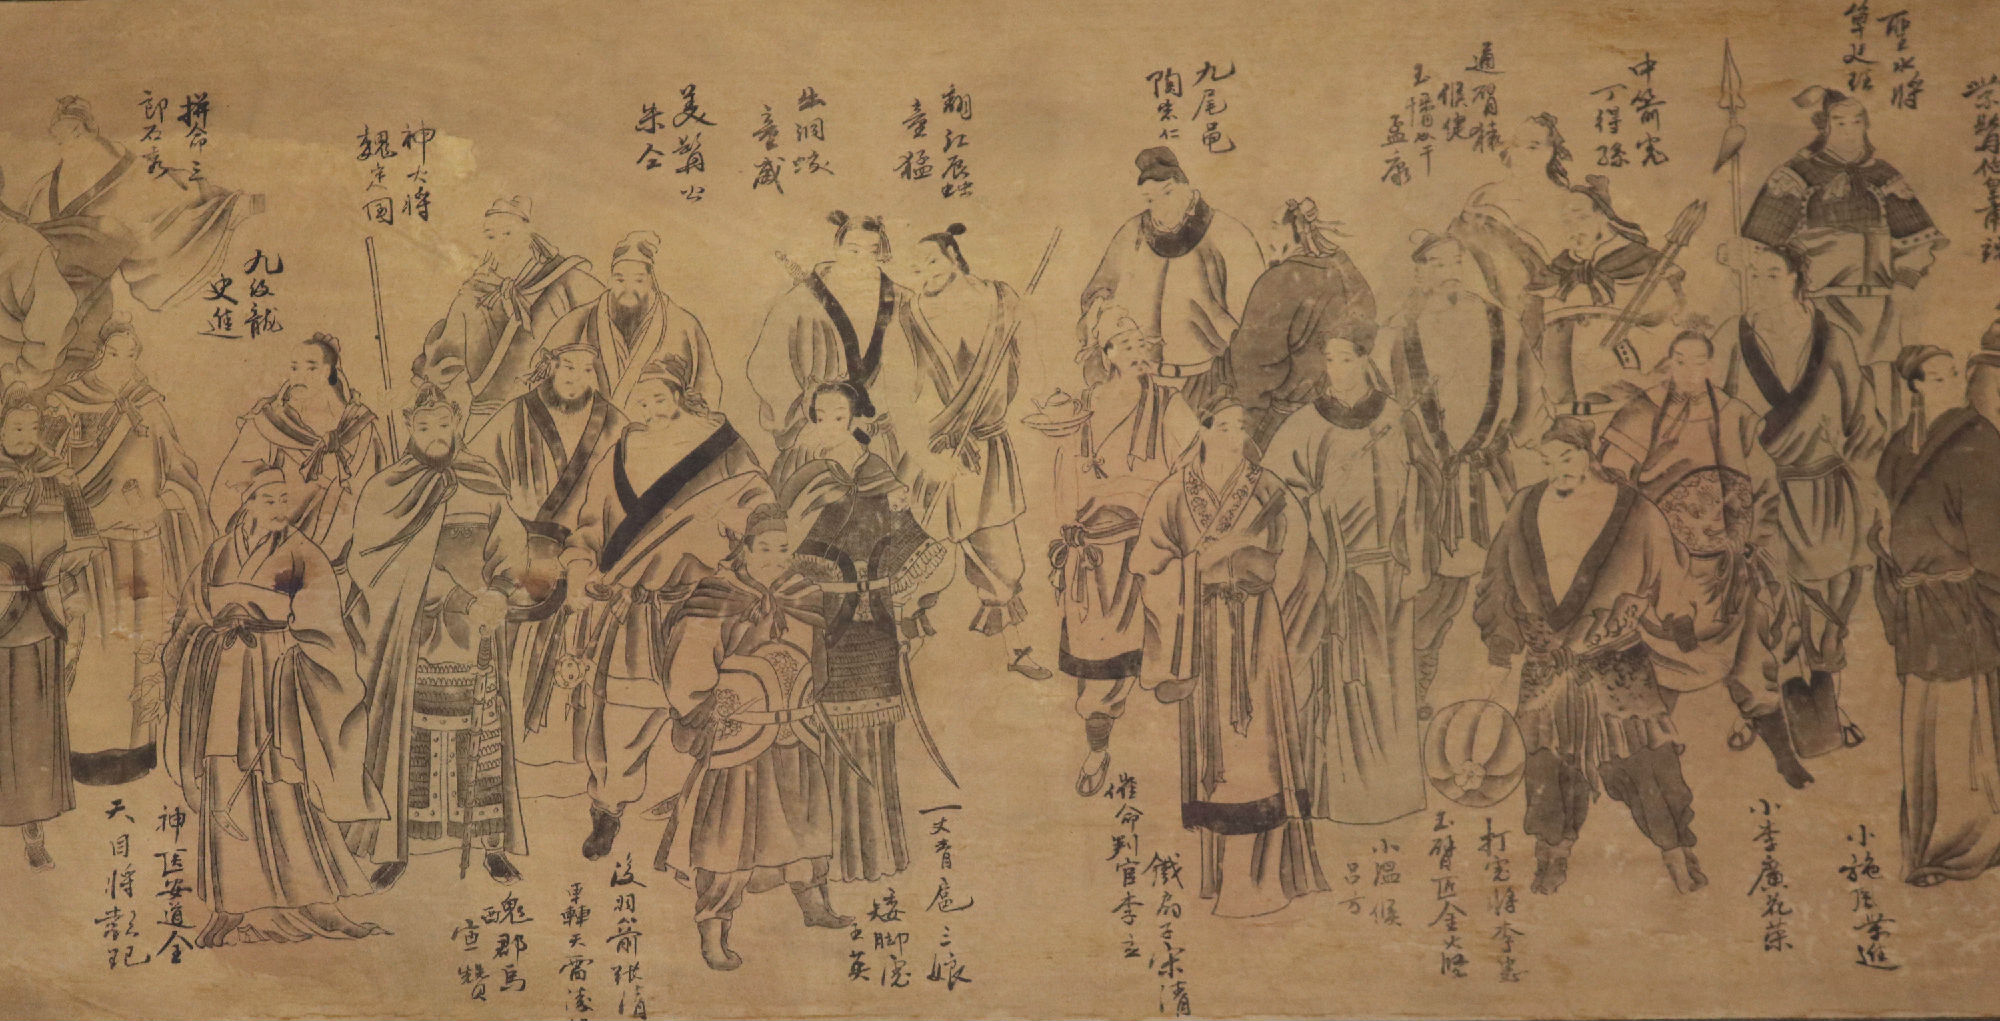 聖水將
單廷珪
中箭虎
丁得孫
通臂猿
侯健
玉幡竿
孟康
九尾龜
陶宗仁
翻江蜃
童猛
出洞蛟
童威
美髯公
朱仝
神火將
魏定國
拼命三
郎石秀
九紋龍
史進
小旋風柴進
小李廣花榮
打虎將李忠
玉臂匠金大堅
小溫侯
呂方
鐵扇子宋清
催命判官李立
一丈青扈三娘
矮脚虎
王英
沒羽箭張清
轟天雷凌
醜郡馬
宣贊
神医安道全
天目將彭玘